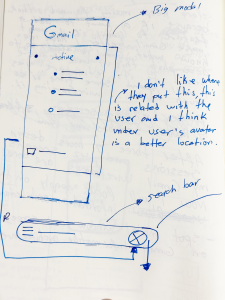 Big modal
Gmail
Active
I don't like where
they put this, this
is related with the
user and I think
under user's avatar
is a better location.
search bar